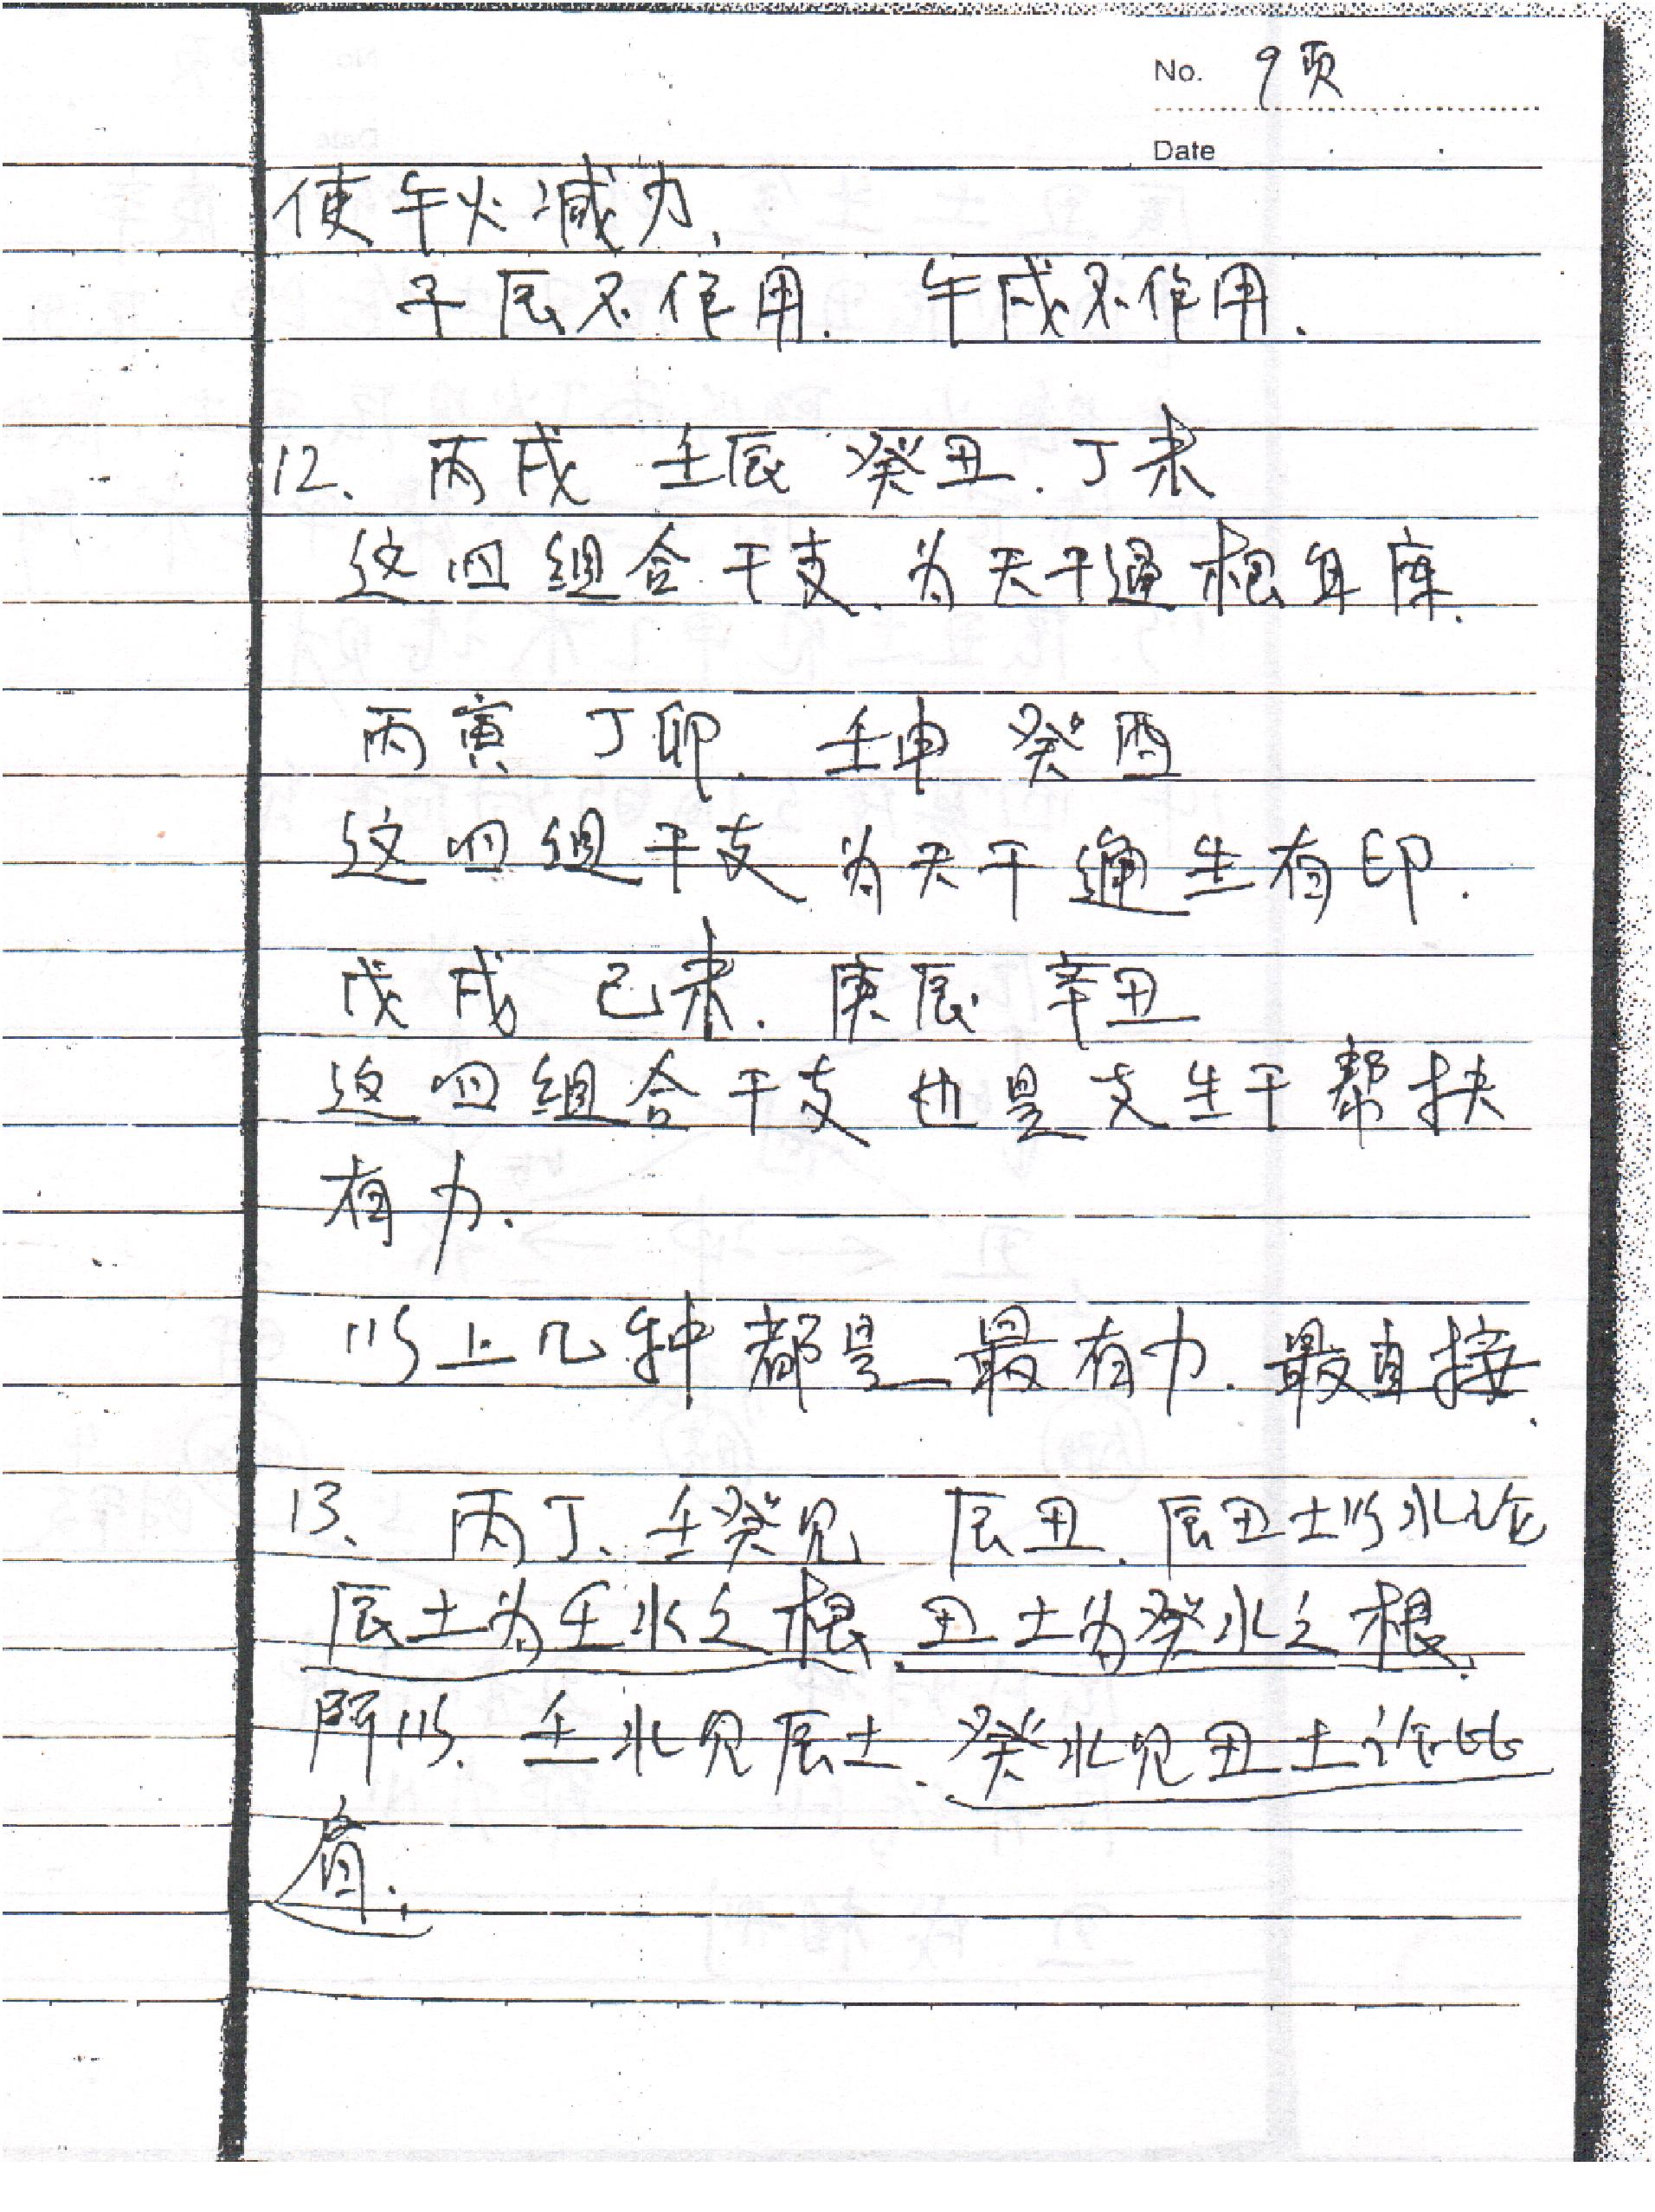 No. 9页
Date
使午火减力、
子辰不作用. 午戌不作用.
12、丙戌 壬辰 癸丑.丁未
这四组合干支.为天干通根自库.
丙寅 丁卯. 壬申 癸酉
这四组干支为天干通生有印.
戊戌 己未. 庚辰 辛丑
这四组合干支也是支生干帮扶
有力.
以上几种都是最有力.最直接.
13、丙丁、壬癸见 辰丑.辰丑土以水论
辰土为壬水之根.丑土为癸水之根.
所以.壬水见辰土.癸水见丑土论比
肩.